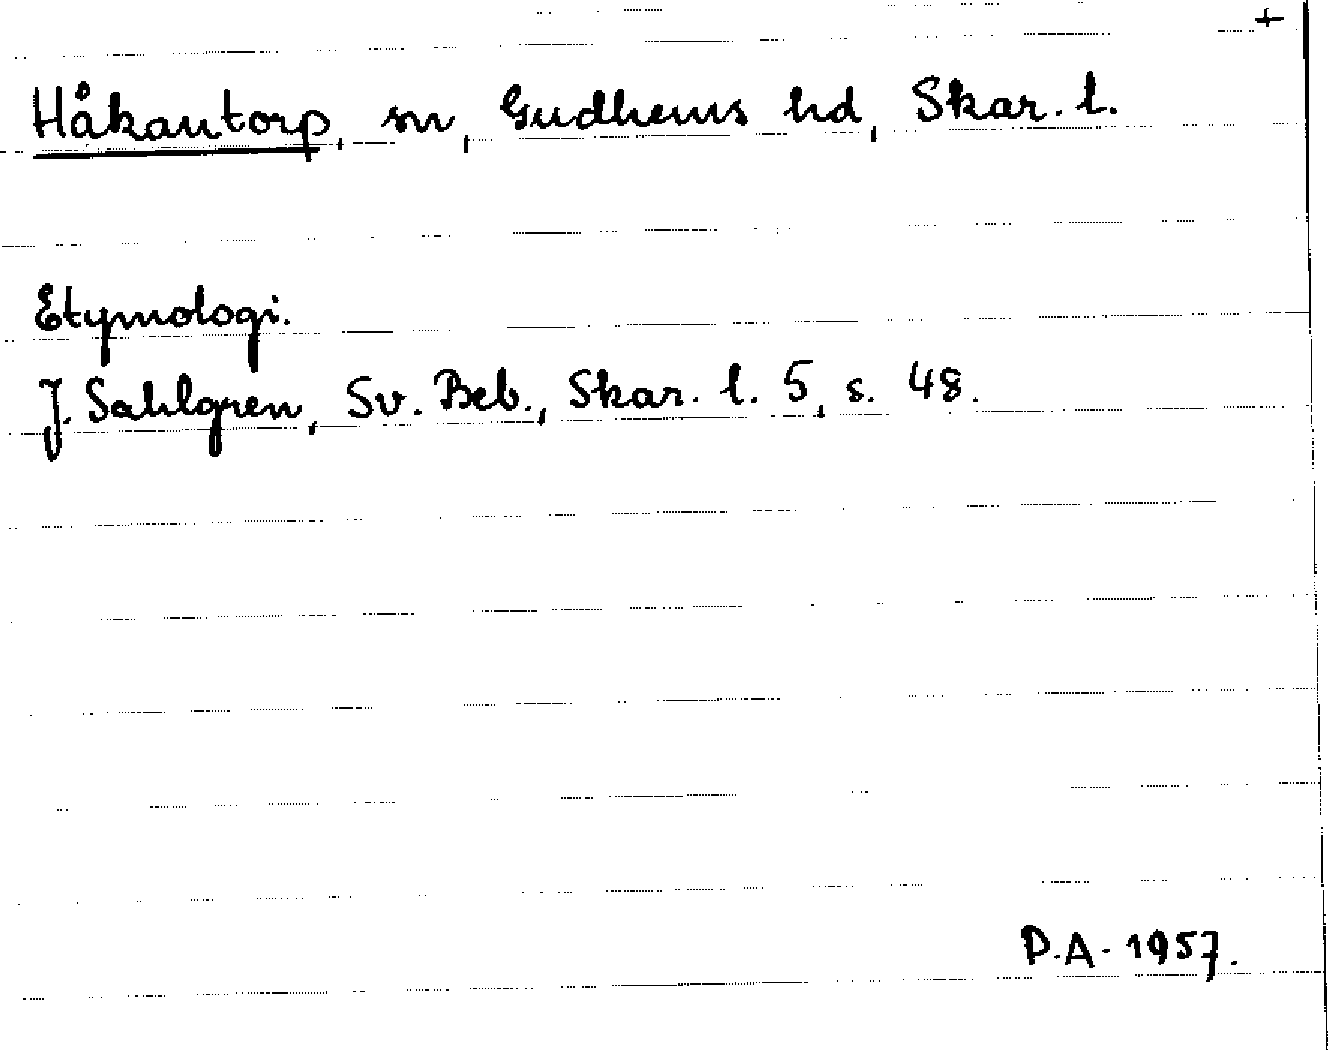 +
Håkantorp, sn, Gudhems hd, Skar. l.
Etymologi.
J. Sahlgren, Sv. Beb., Skar. l. 5, s. 48.
P.A. 1957.